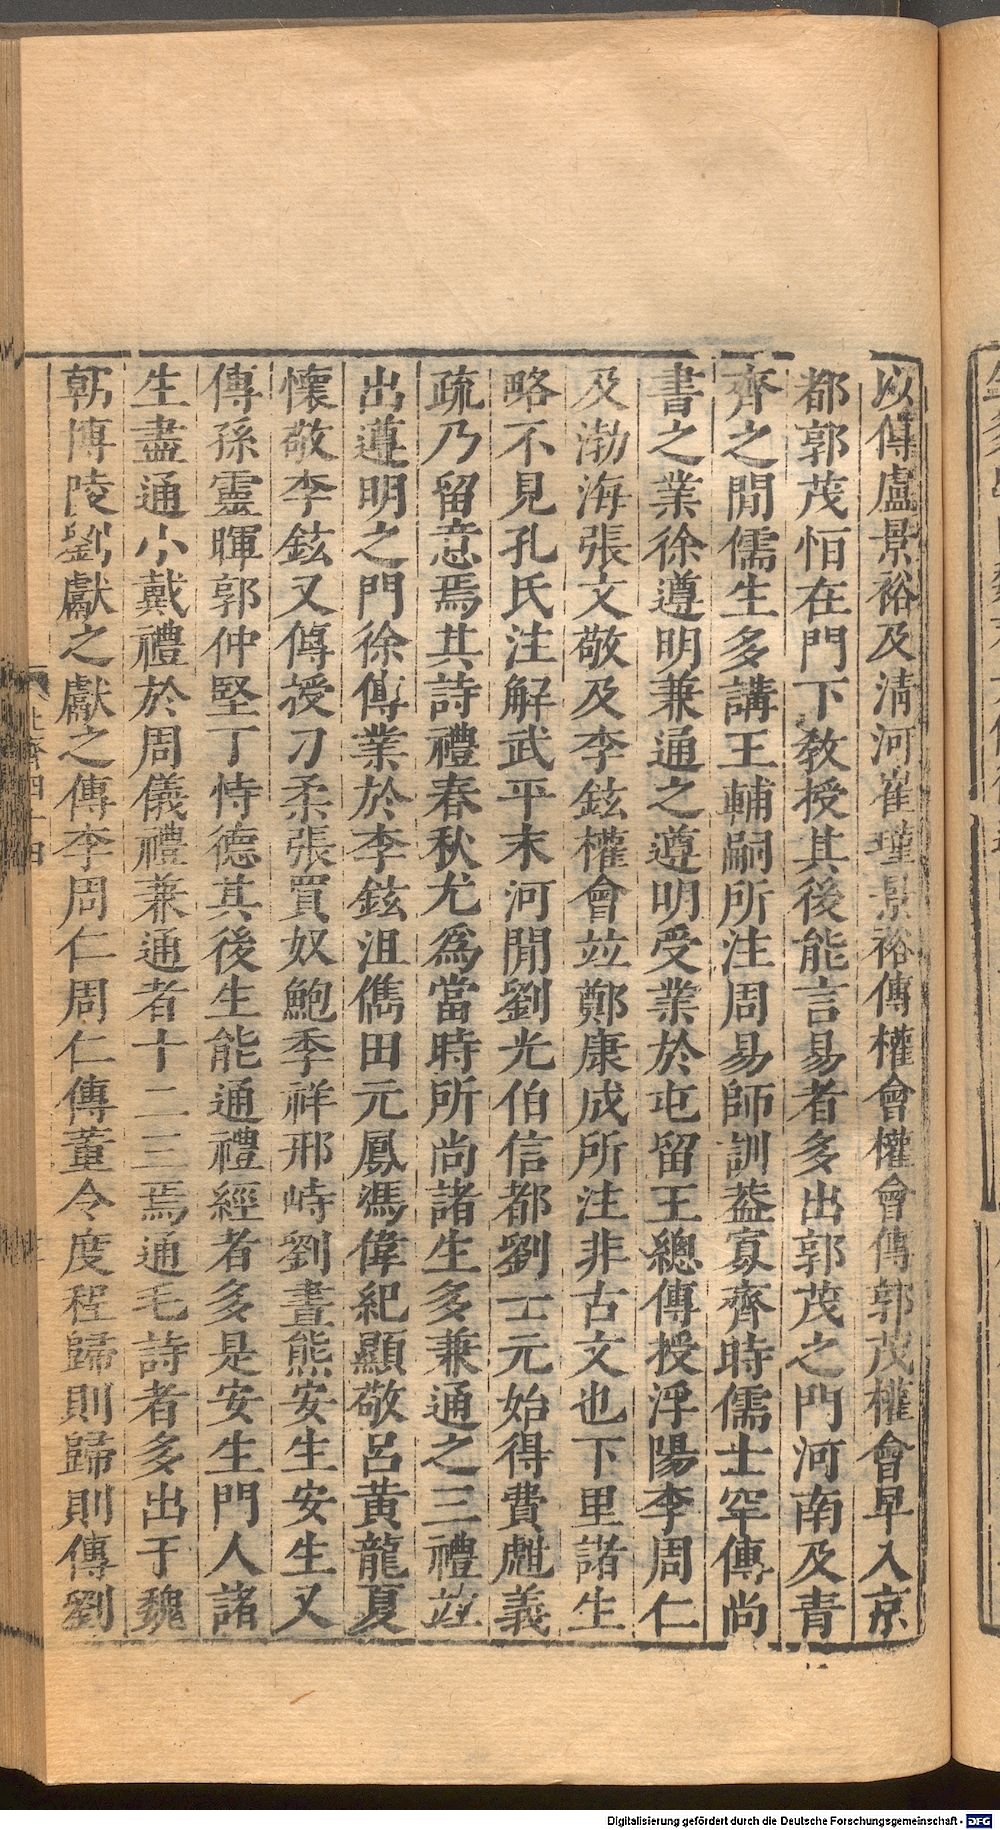 以傳盧景裕及清河崔瑾景裕傳權會權會傳郭茂權會早入京
都郭茂恒在門下教授其後能言易者多出郭茂之門河南及青
齊之閒儒生多講王輔嗣所注周易師訓葢寡齊時儒士罕傳尚
書之業徐遵明兼通之遵明受業於屯留王總傳授浮陽李周仁
及渤海張文敬及李鉉權會竝鄭康成所注非古文也下里諸生
略不見孔氏注解武平末河閒劉光伯信都劉士元始得費甝義
疏乃留意焉其詩禮春秋尤爲當時所尚諸生多兼通之三禮竝
出遵明之門徐傳業於李鉉沮儁田元鳳馮偉紀顯敬呂黃龍夏
懷敬李鉉又傳授刁柔張買奴鮑季祥邢峙劉晝熊安生安生又
傳孫靈暉郭仲堅丁恃德其後生能通禮經者多是安生門人諸
生盡通小戴禮於周儀禮兼通者十二三焉通毛詩者多出于魏
朝博陵劉獻之獻之傳李周仁周仁傳董令度程歸則歸則傳劉
Digitalisierung gefördert durch die Deutsche Forschungsgemeinschaft - DFG